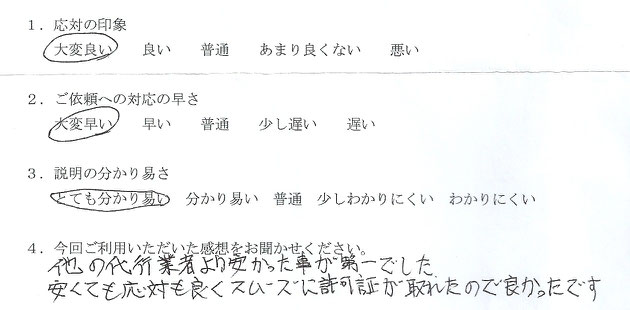 1．応対の印象
大変良い　良い　普通　あまり良くない　悪い
2．ご依頼への対応の早さ
大変早い　早い　普通　少し遅い　遅い
3．説明の分かり易さ
とても分かり易い　分かり易い　普通　少しわかりにくい　わかりにくい
4．今回ご利用いただいた感想をお聞かせください。
他の代行業者より安かった事が第一でした。
安くても応対も良くスムーズに許可証が取れたので良かったです